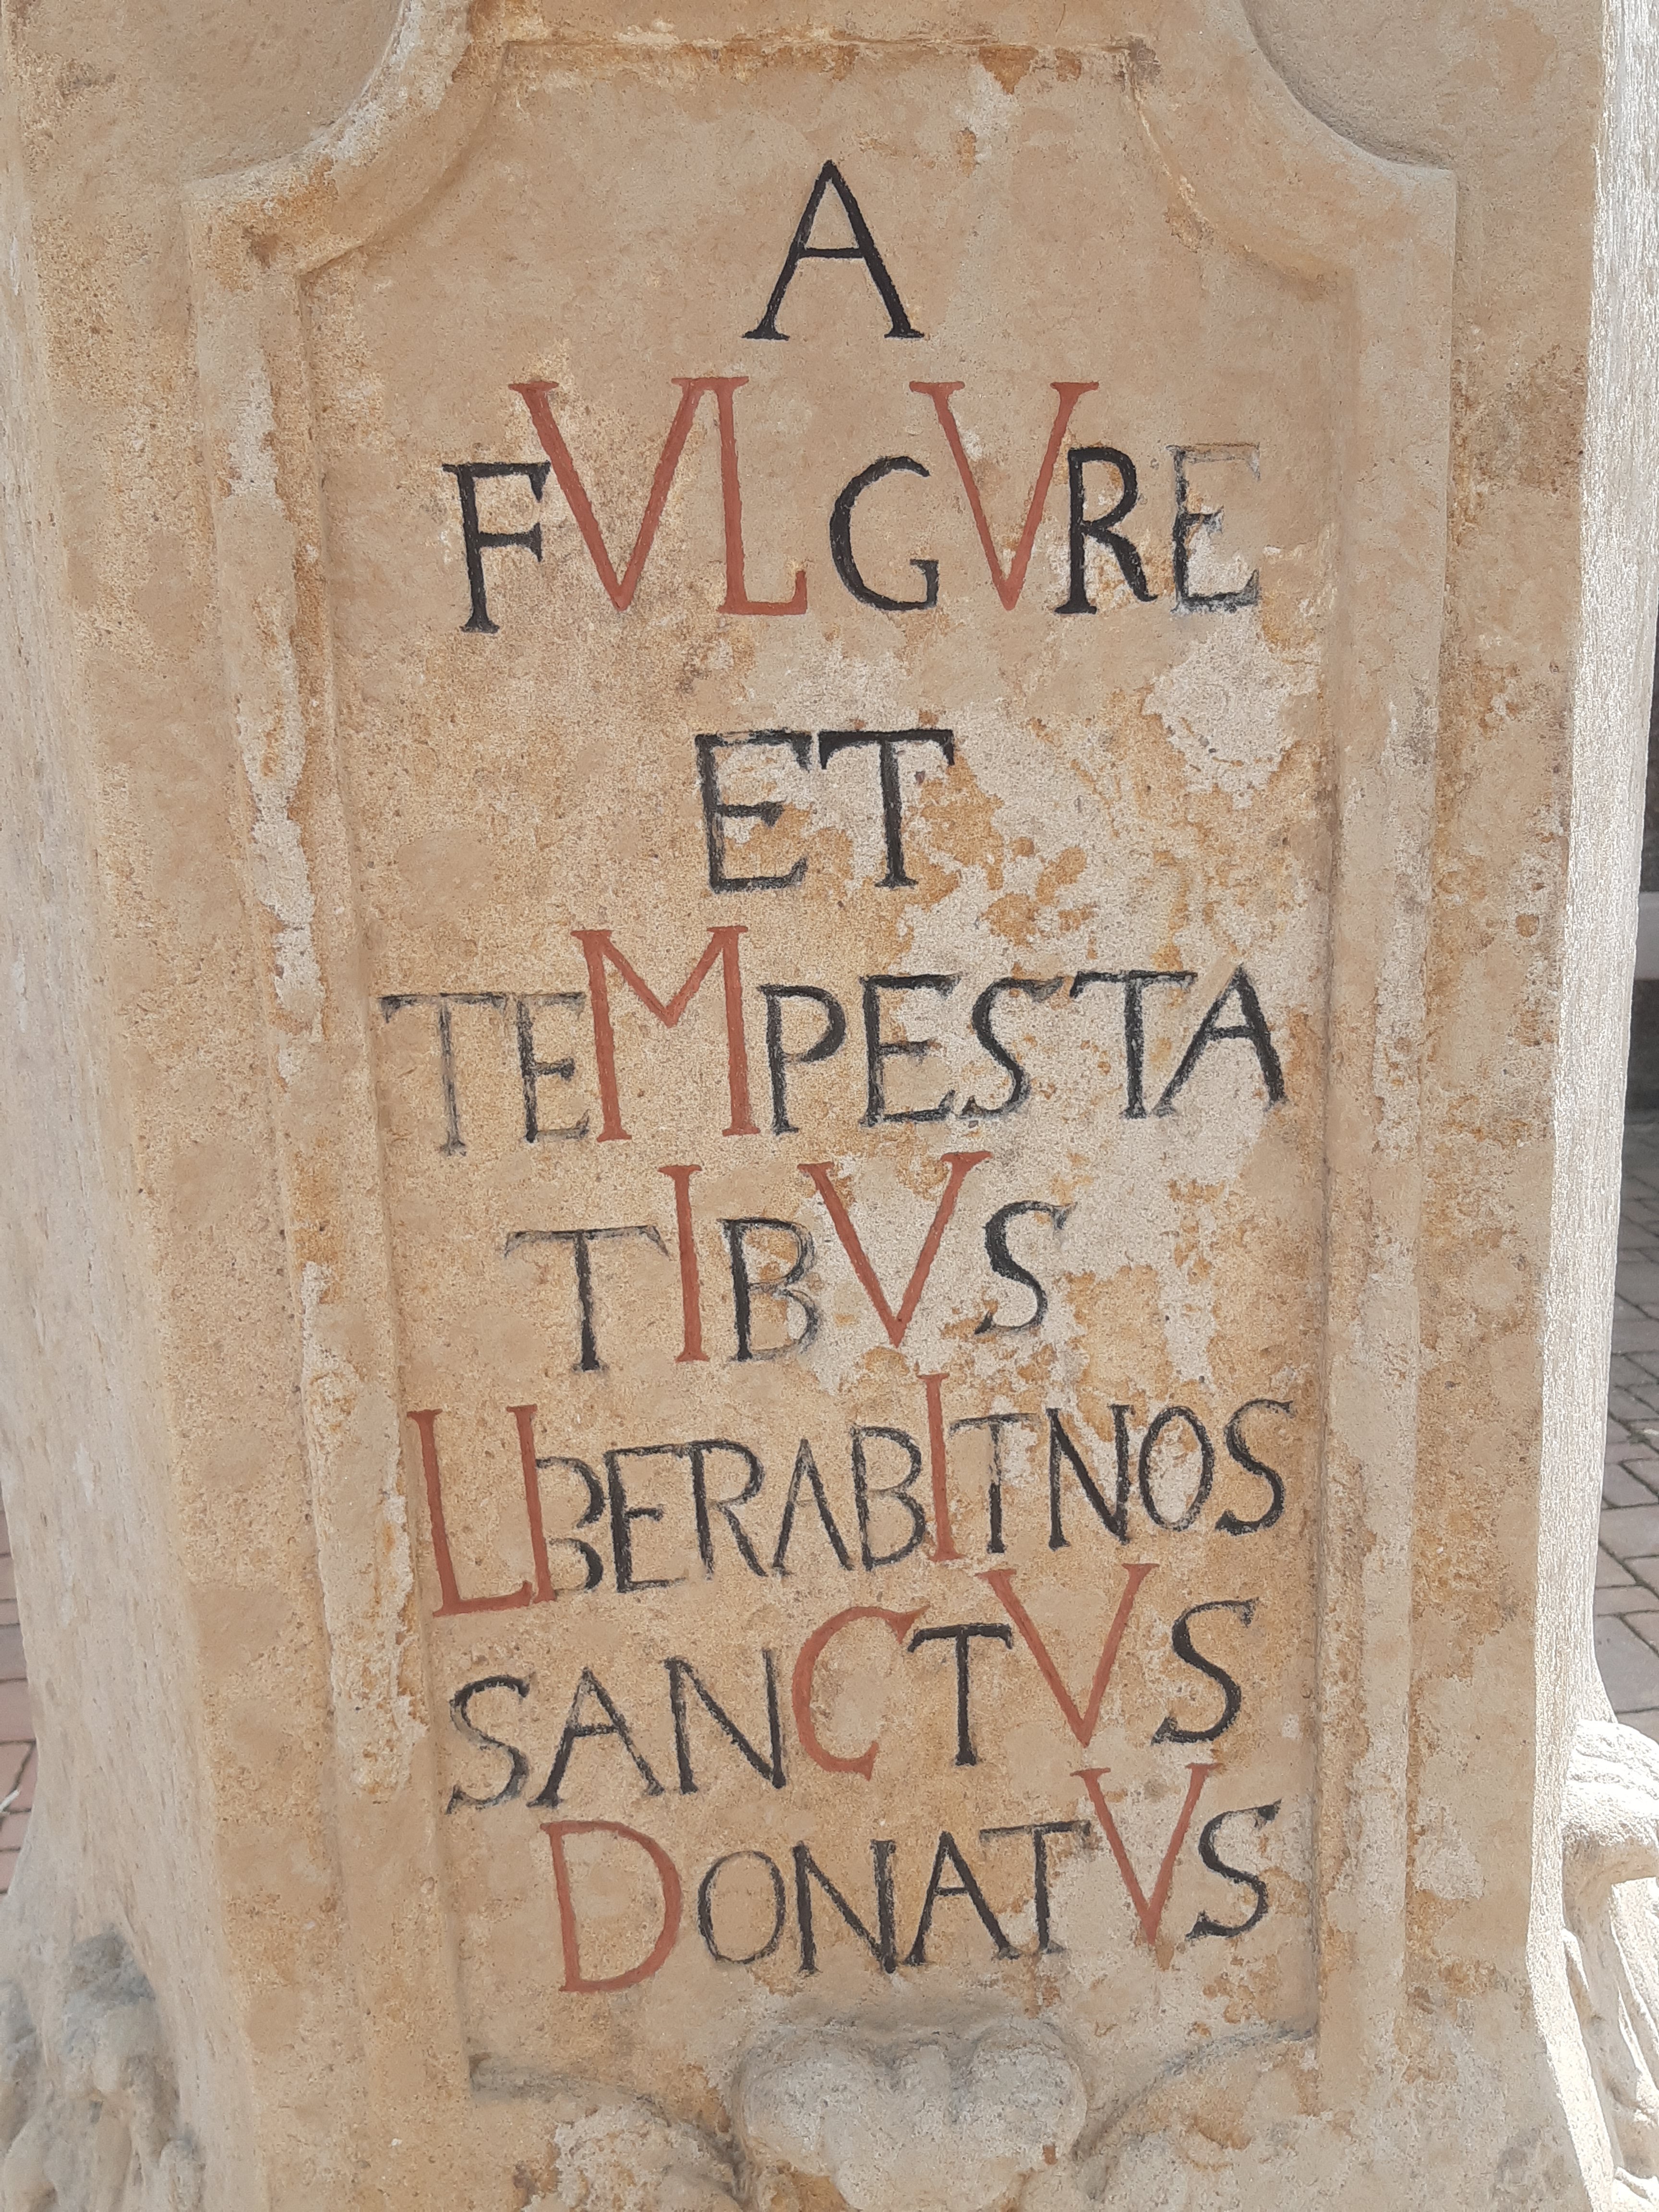 A
FVLGVRE
ET
TEMPESTA
TIBVS
LIBERABITNOS
SANCTVS
DONATVS